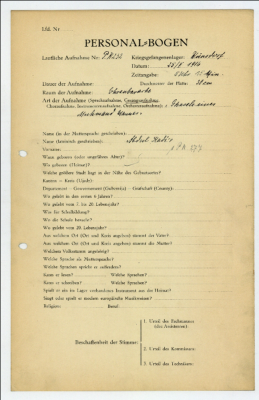 Lfd. Nr
PERSONAL-BOGEN
Lautliche Aufnahme Nr. PK 252
Kriegsgefangenenlager: Wünsdorf
Datum:
Zeitangabe:
Dauer der Aufnahme:
Durchmesser der Platte:
Raum der Aufnahme: Ehrenbaracke
Art der Aufnahme (Sprechaufnahme, Gesangsaufnahme,
Choraufnahme, Instrumentenaufnahme, Orchesteraufnahme):
Name (in der Muttersprache geschrieben):
Name (lateinisch geschrieben): Abdul Kadir
Vorname:
Wann geboren (oder ungefähres Alter)?
Wo geboren (Heimat)?
Welche größere Stadt liegt in der Nähe des Geburtsortes?
Kanton — Kreis (Ujedz)
Departement — Gouvernement (Gubernija) — Grafschaft (County)
Wo gelebt in den ersten 6 Jahren?
Wo gelebt vom 7. bis 20. Lebensjahr?
Was für Schulbildung?
Wo die Schule besucht?
Wo gelebt vom 20. Lebensjahr?
Aus welchem Ort (Ort und Kreis angeben) stammt der Vater?
Aus welchem Ort (Ort und Kreis angeben) stammt die Mutter?
Welchem Volksstamm angehörig?
Welche Sprache als Muttersprache?
Welche Sprachen spricht er außerdem?
Kann er lesen? Welche Sprachen?
Kann er schreiben? Welche Sprachen?
Spielt er ein im Lager vorhandenes Instrument aus der Heimat?
Singt oder spielt er modern europäische Musikweisen?
Religion: Beruf:
Beschaffenheit der Stimme:
1. Urteil des Fachmannes
(des Assistenten):
2. Urteil des Kommissars:
3. Urteil des Technikers: